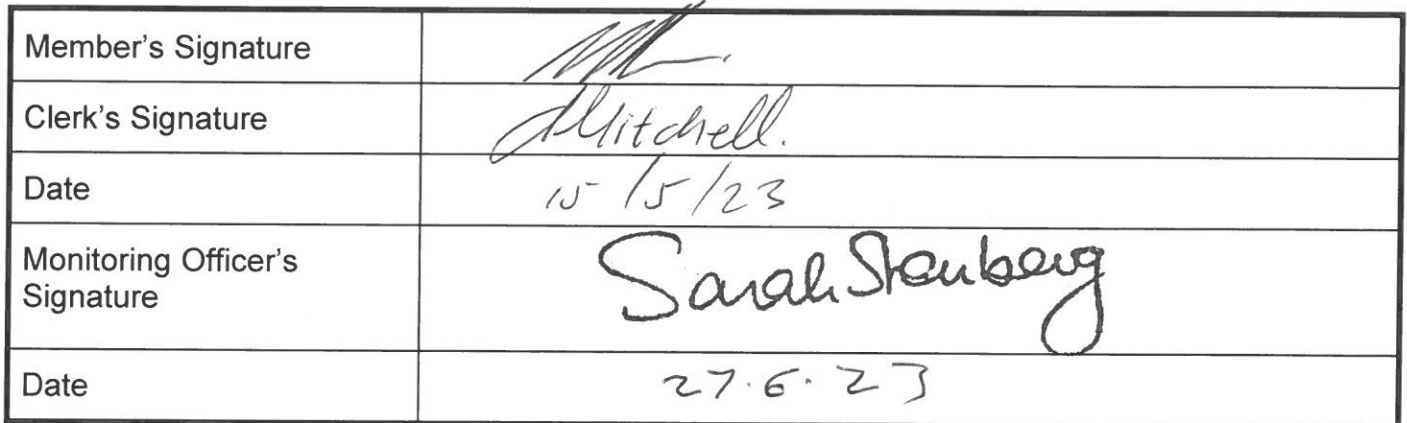 Member's Signature
Clerk's Signature
Mitchell.
Date
15/5/23
Monitoring Officer's
Signature
Sarah Stenberg
Date
27.6.23